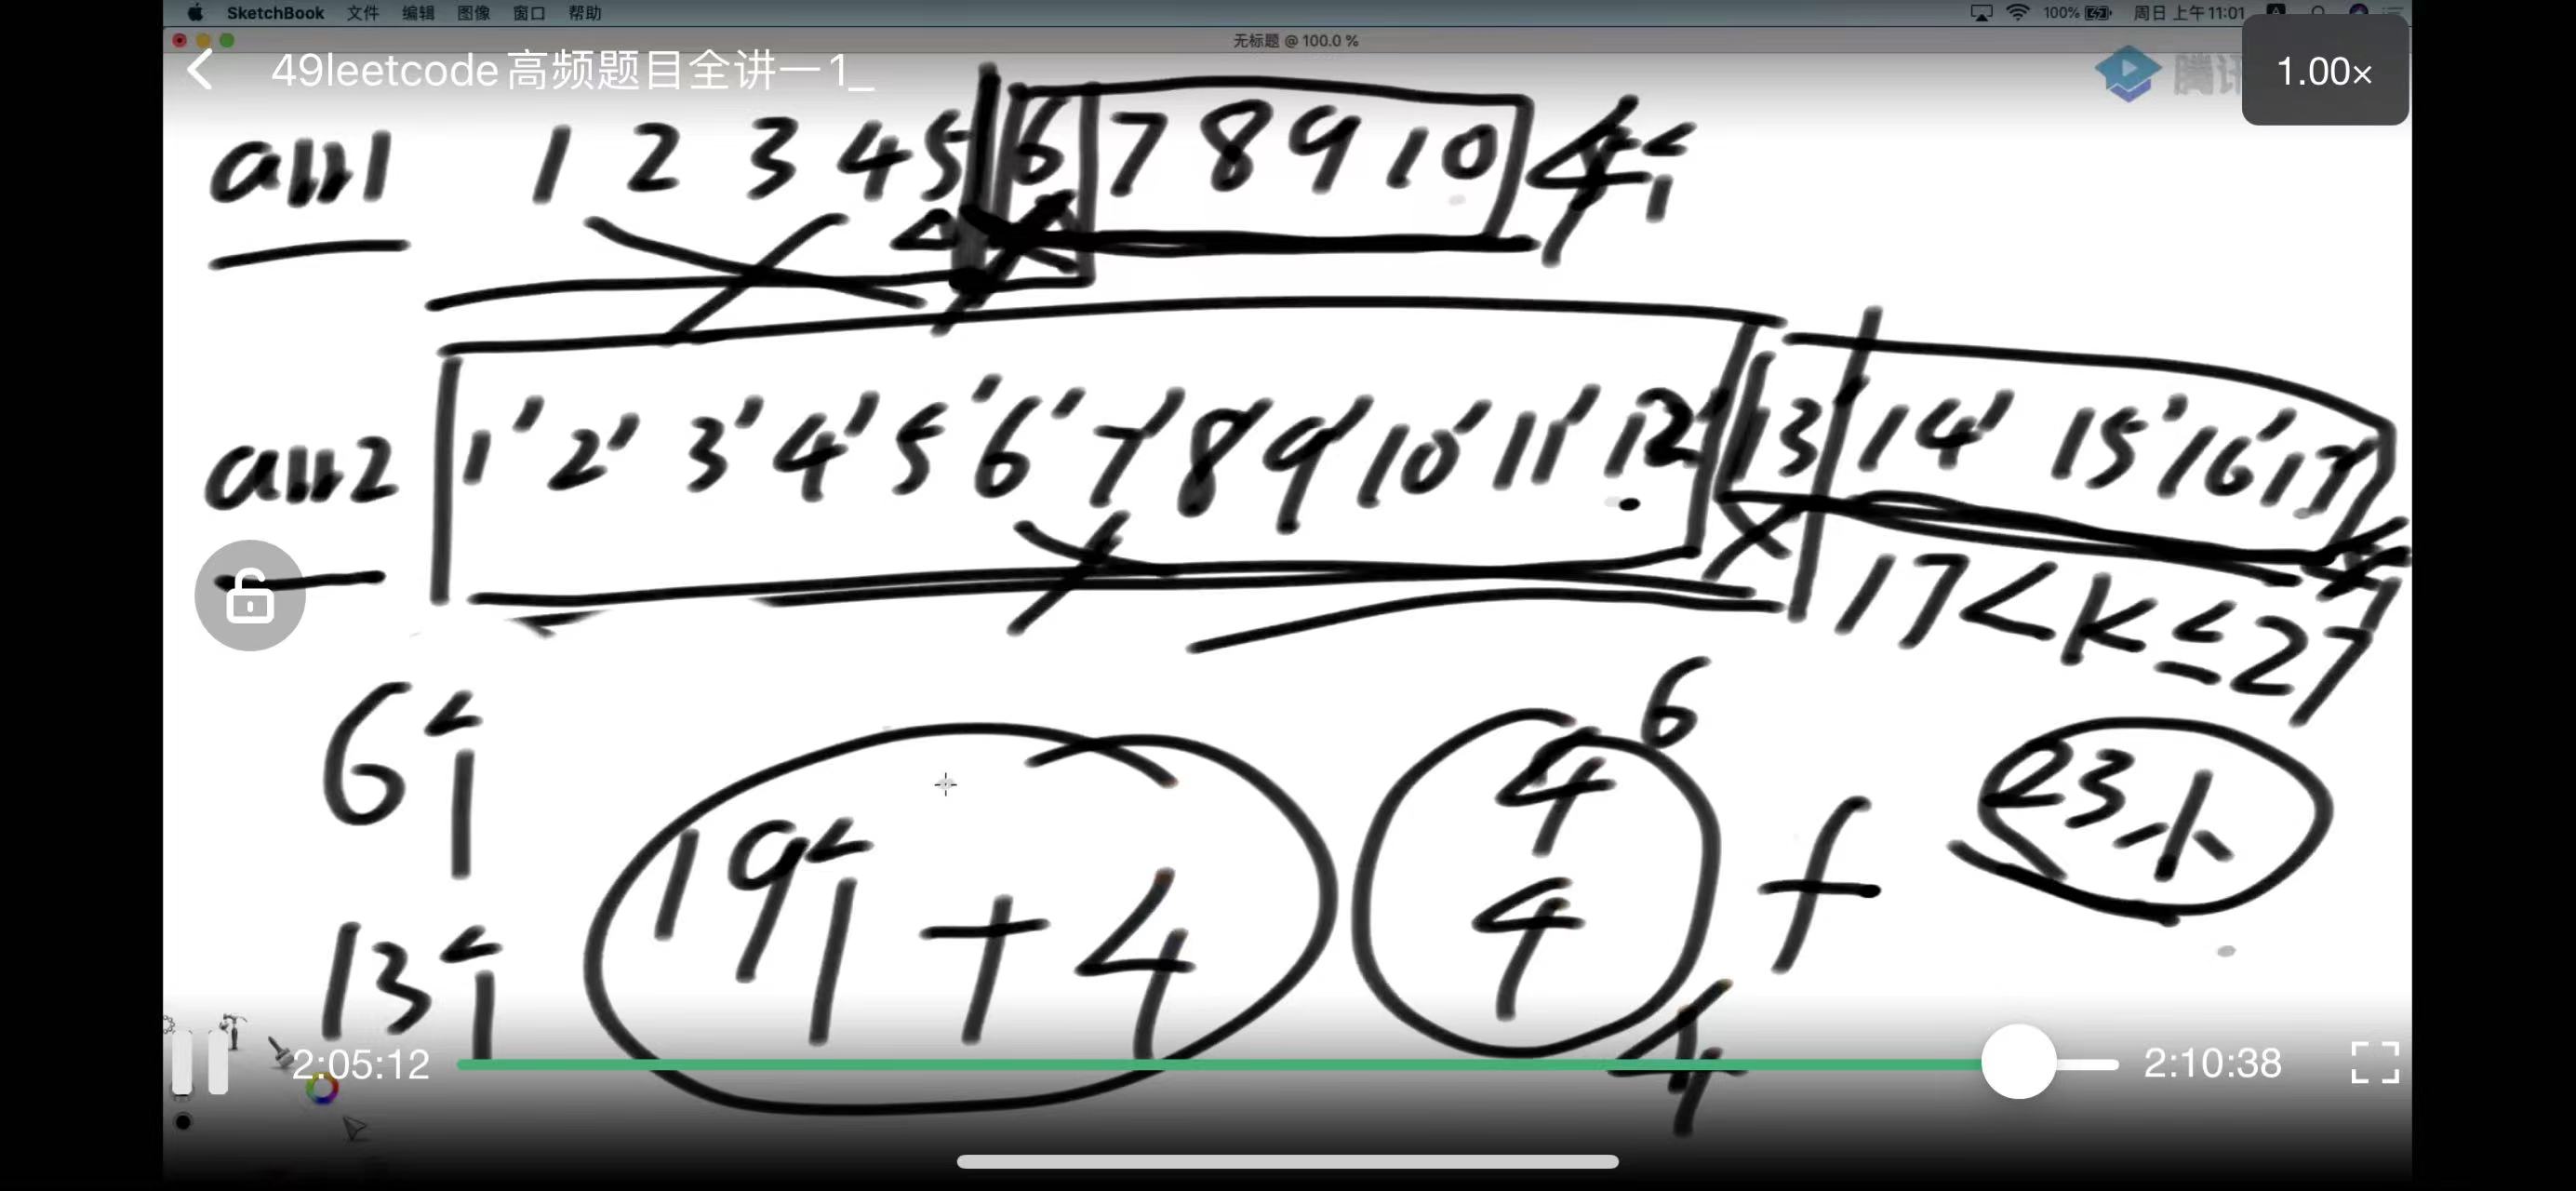 SketchBook 文件 编辑 图像 窗口 帮助 100% 周日 上午11:01
无标题 @ 100.0 %
49leetcode高频题目全讲一1_
1.00×
arr1 1 2 3 4 5 6 7 8 9 10 4个
arr2 1' 2' 3' 4' 5' 6' 7' 8' 9' 10' 11' 12' 13' 14' 15' 16' 17'
17<K≤27
6个
13个
19个+4
4 6
4
4
23小
2:05:12
2:10:38